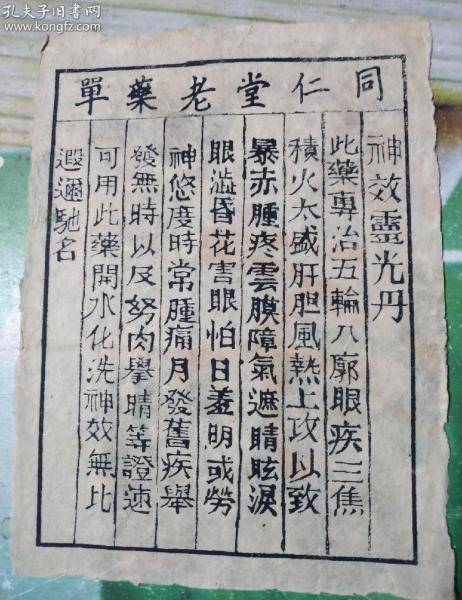 孔夫子旧书网
www.kongfz.com
同仁堂老藥單
神效靈光丹
此藥專治五輪八廓眼疾三焦
積火太盛肝胆風熱上攻以致
暴赤腫疼雲膜障氣遮睛眩淚
眼澁昏花害眼怕日羞明或勞
神悠度時常腫痛月發舊疾舉
發無時以及努肉攀睛等證速
可用此藥開水化洗神效無比
遐邇馳名